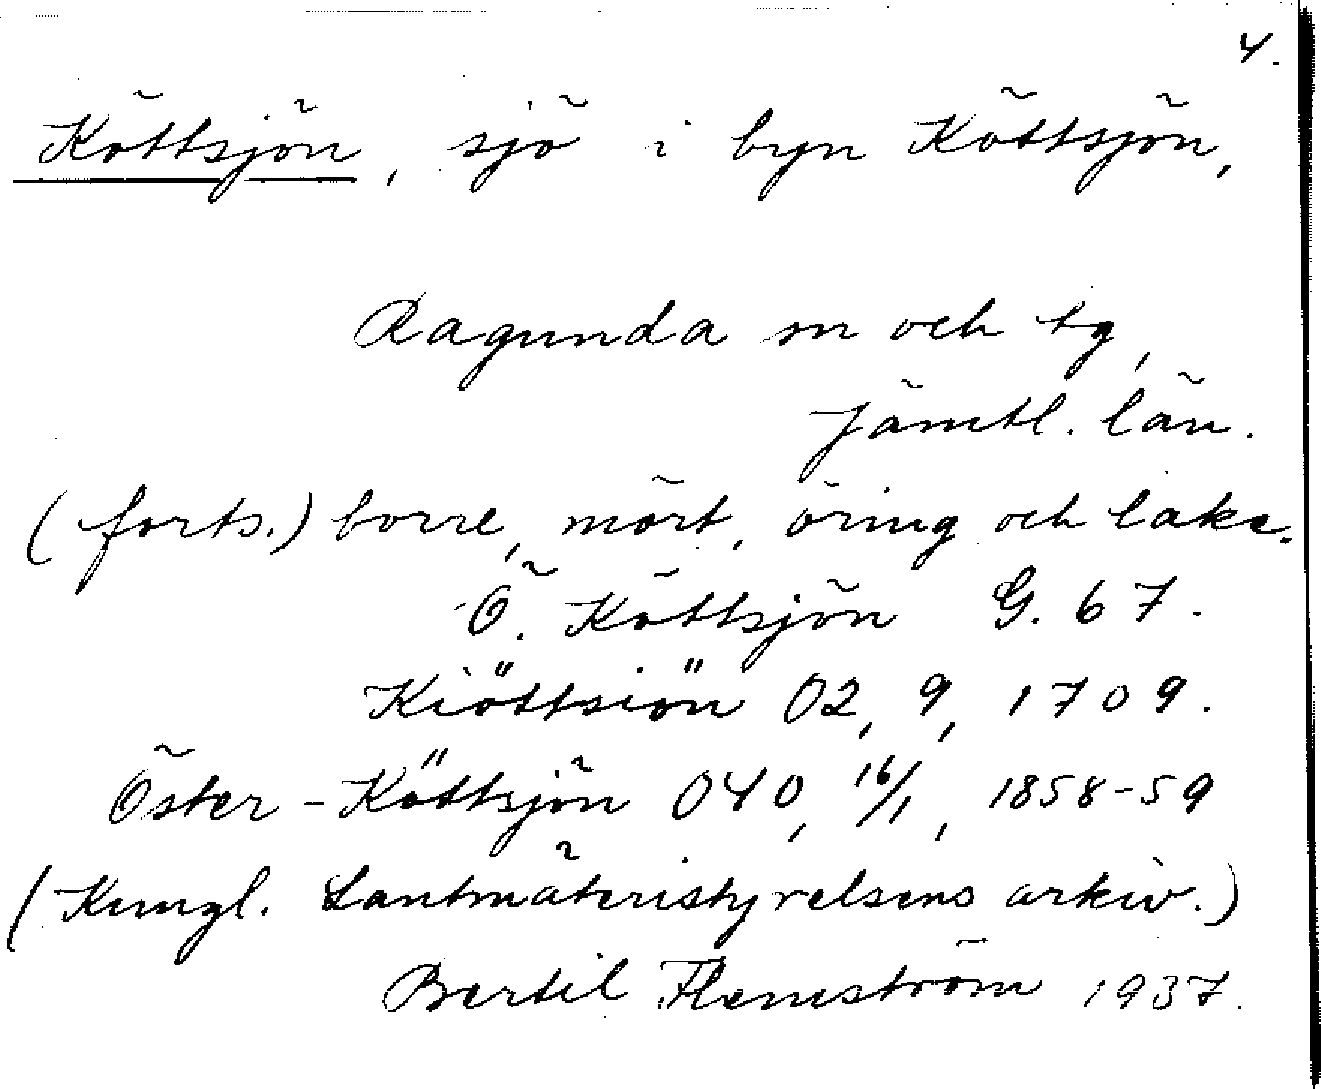 4.
Köttsjön, sjö i byn Köttsjön,
Ragunda sn och tg,
Jämtl. län.
(forts.) borre, mört, öring och lake.
Ö. Köttsjön G. 67.
Kiöttsiön O2, 9, 1709.
Öster-Köttsjön O40, 16/1, 1858-59
(Kungl. Lantmäteristyrelsens arkiv.)
Bertil Flemström 1937.